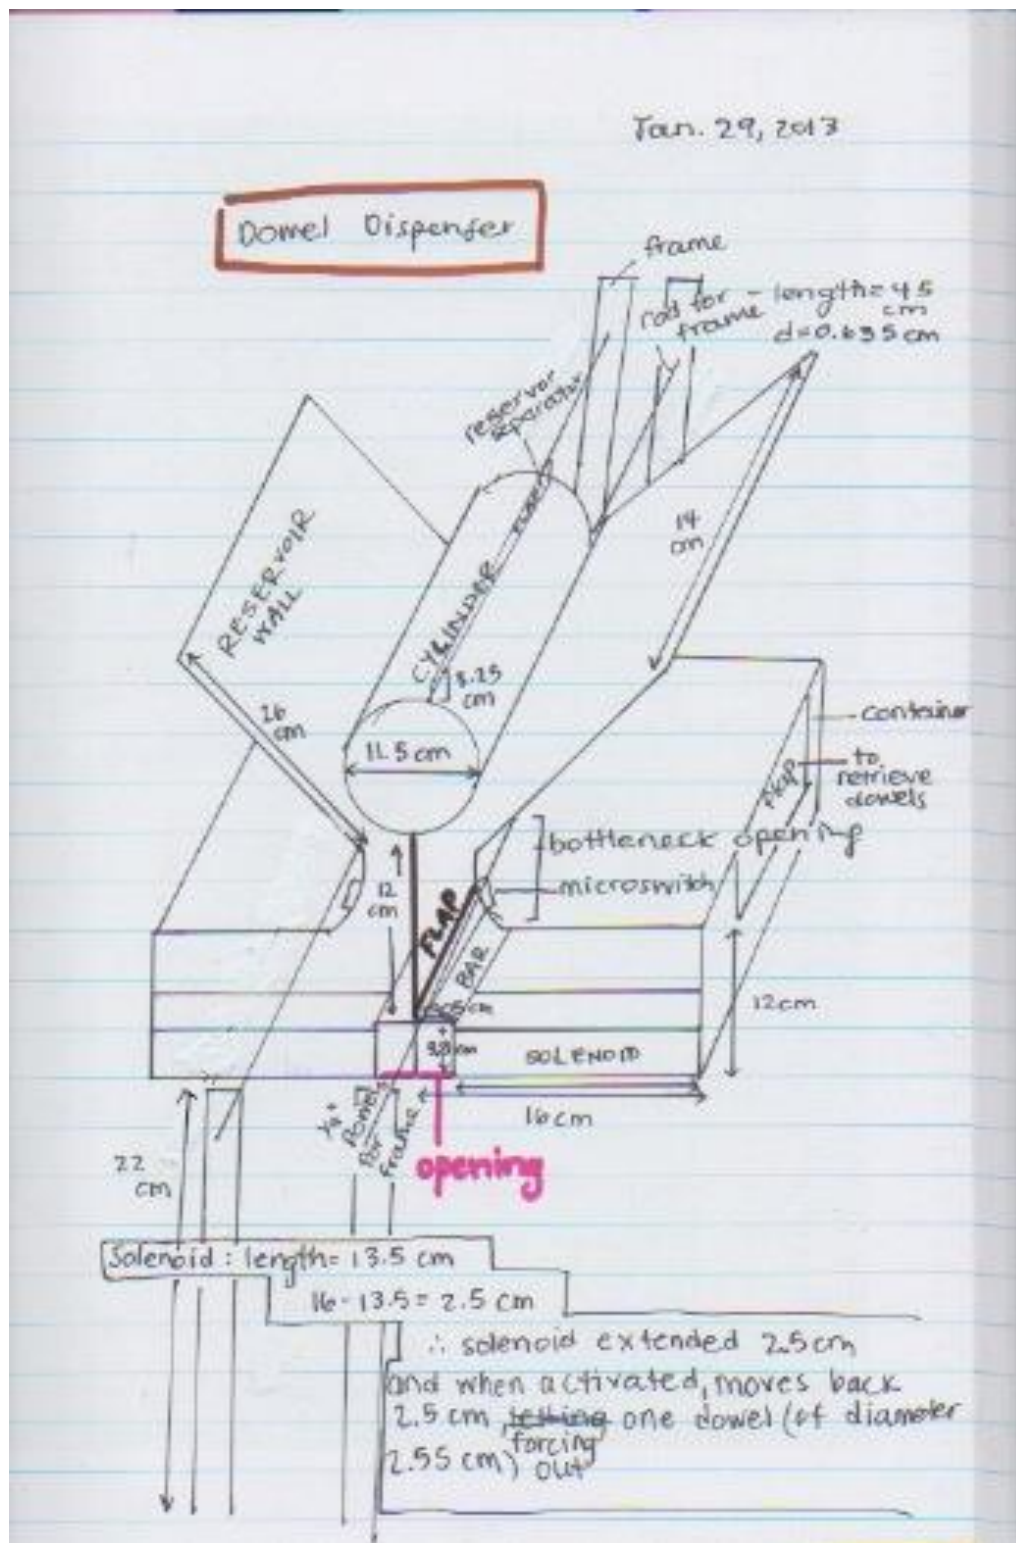 Jan. 29, 2013
Dowel Dispenser
frame
rod for frame - length = 45 cm
d=0.635 cm
reservoir separator
CYLINDER
RESERVOIR WALL
14 cm
8.25 cm
26 cm
11.5 cm
container
FLAP
to retrieve dowels
bottleneck opening
microswitch
12 cm
FLAP
BAR
12cm
SOLENOID
16cm
Dowel for frame
opening
22 cm
Solenoid : length= 13.5 cm
16-13.5 = 2.5 cm
∴ solenoid extended 2.5cm
and when activated, moves back
2.5 cm, forcing one dowel (of diameter
2.55 cm) out